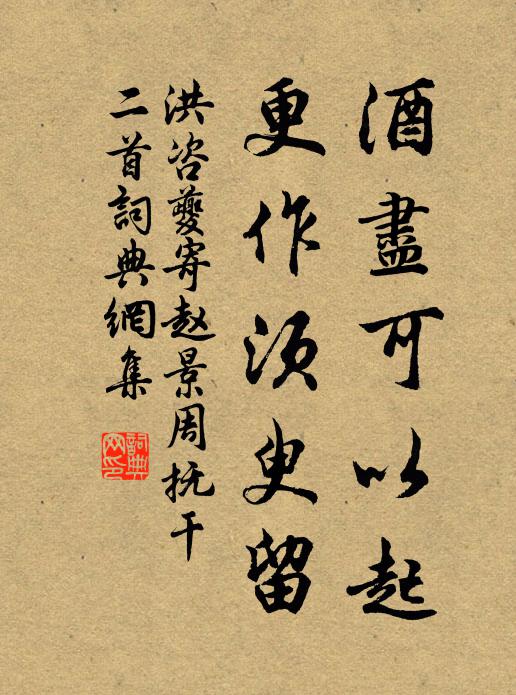 酒盡可以起
更作須臾留
洪咨夔寄赵景周抚干
二首詞典網集
詞典網印